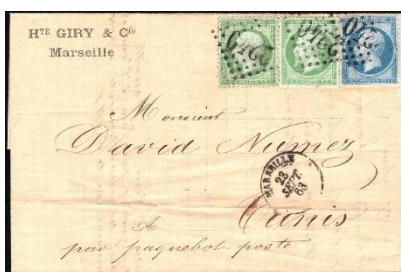 HTE GIRY & Cie
Marseille
2240
2240
2240
Monsieur
David Nunez
MARSEILLE
23
SEPT.
63
Tunis
par paquebot poste